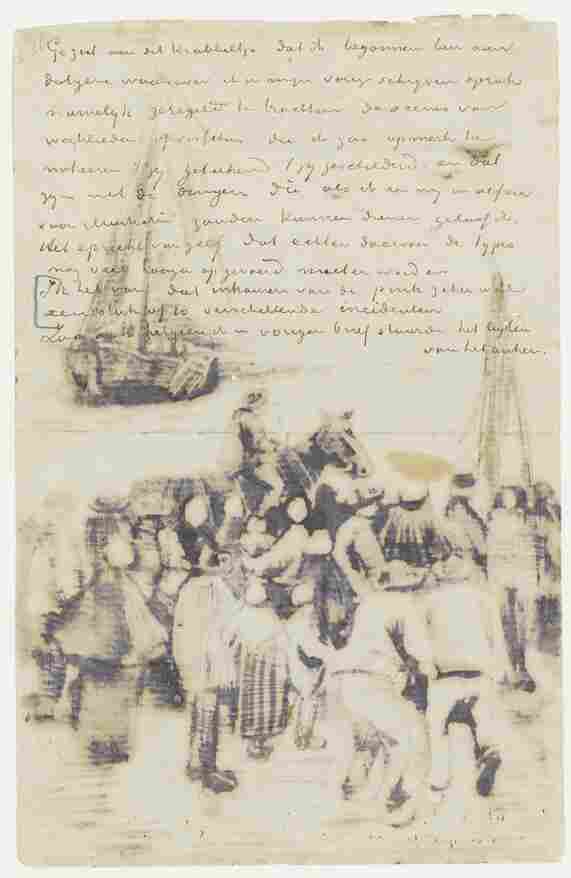 Ge ziet aan dit krabbeltje dat ik begonnen ben aan
datgene waarover ik in mijn vorig schrijven sprak
namelijk geregeld te trachten de scenes van
werklieden of visschers die ik zou opmerken te
noteeren 't zij geteekend 't zij geschilderd. en dat
zijn net de dingen die als ik ze
voor illustratie zouden kunnen dienen geloof ik.
Het spreekt van zelf dat echter daarvoor de types
nog veel hooger opgevoerd moeten worden
Ik heb van dat van de pink zeker wel
een stuk of 10 verschillende incidenten
Zooals hetgeen ik in vorigen brief stuurde het ligten
van het anker.